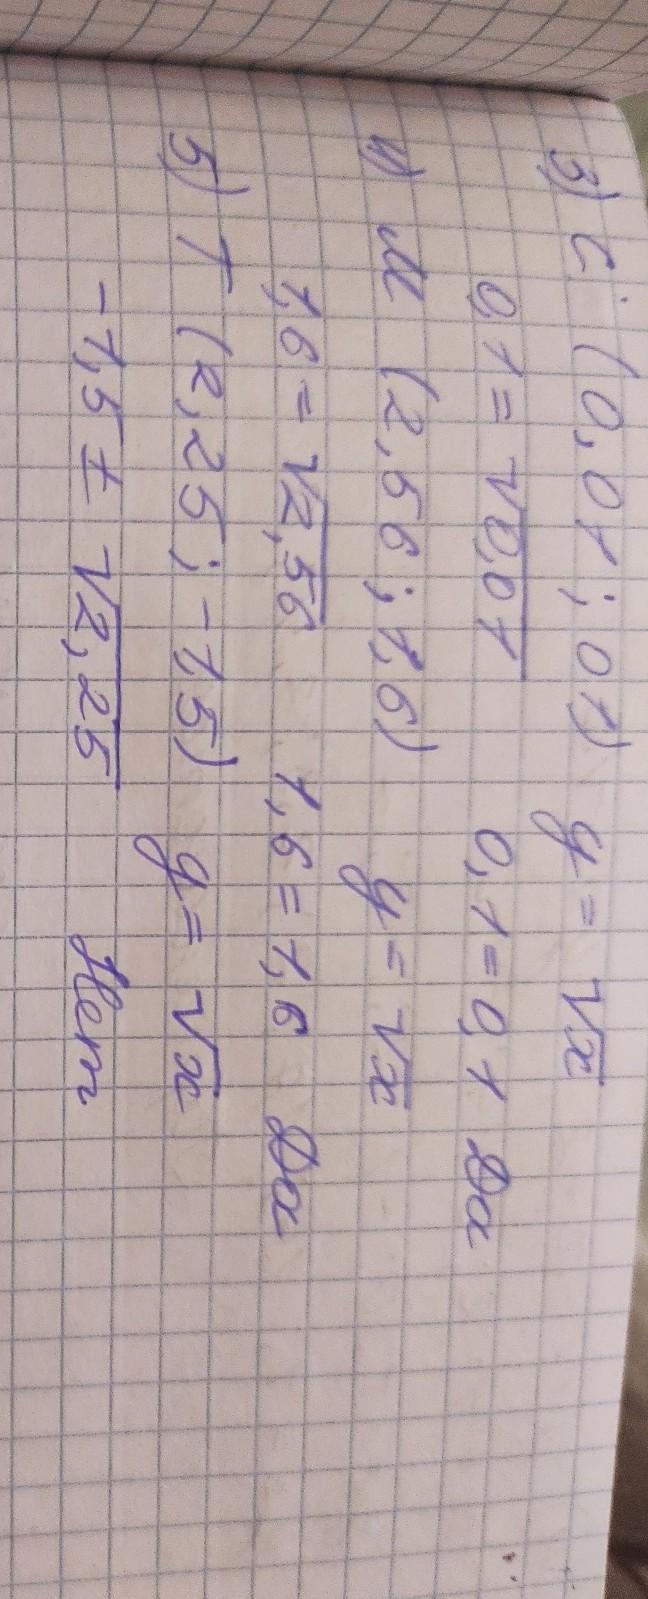 3) C. (0,01; 01) y = √x
0,1 = √0,01 0,1 = 0,1 Да
4) М (2,56; 1,6) y = √x
1,6 = √2,56 1,6 = 1,6 Да
5) Т (2,25; -1,5) y = √x
-1,5 ± √2,25 Нет